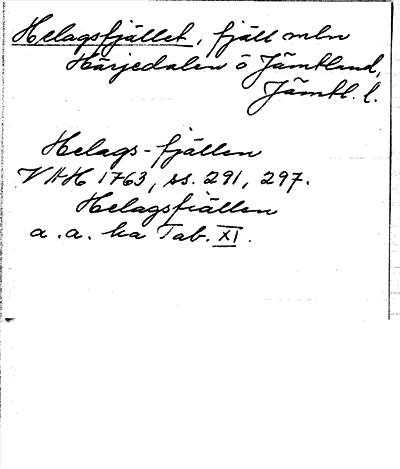 Helagsfjället, fjäll mln
Härjedalen o Jämtland,
Jämtl. l.
Helags-fjällen
VAH 1763, ss. 291, 297.
Helagsfiällen
a. a. ka Tab. XI.